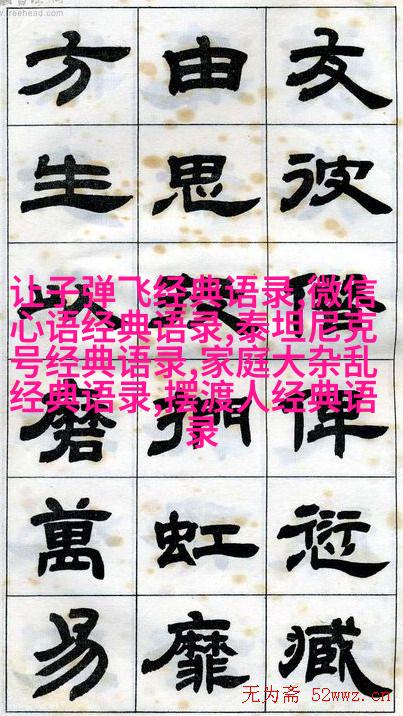 www.freehead.com
友彼俾愆臧
由思虹靡
方生以磨萬易
让子弹飞经典语录,微信
心语经典语录,泰坦尼克
号经典语录,家庭大杂乱
经典语录,摆渡人经典语
录
无为斋 52wwz.cn